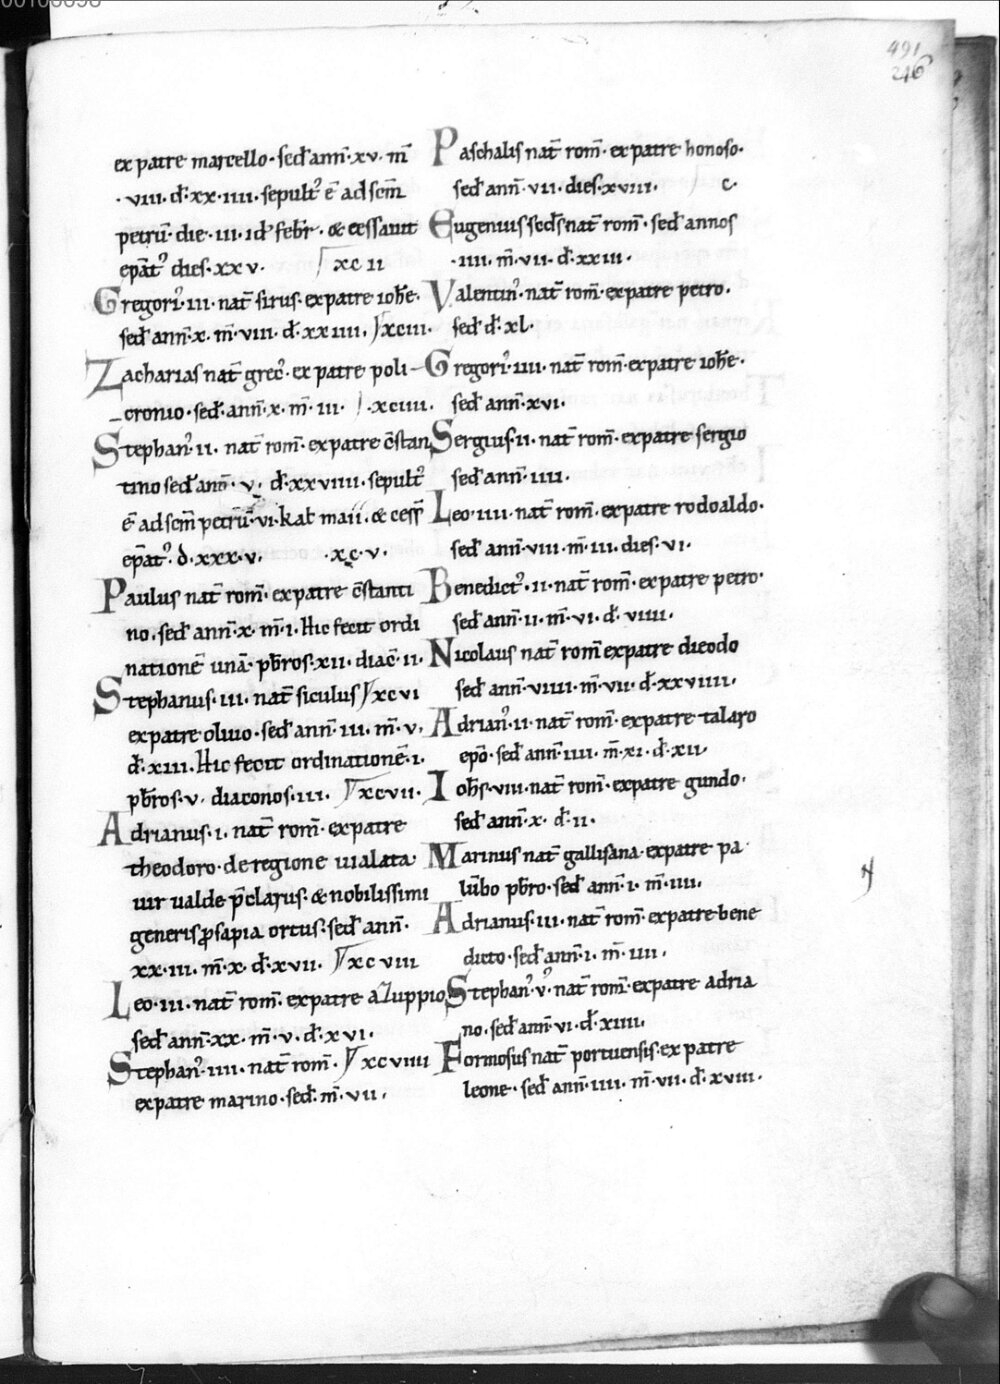 491
246
ex patre marcello· sed̄ ann̄· xv· m̄
· viii· d̄· xx· iiii· sepult᾿ ē ad scm̄
petrū· die· iii· id̄ febr̄· & cessauit
ep̄at᾿ dies· xxv· xcii
Gregori᾿· iii· nat̄ sirus· ex patre ioh̄e·
sed̄ ann̄· x· m̄· viii· d̄· xxiiii· xciii·
Zacharias nat̄ grec᾿· ex patre poli-
-cronio· sed̄· ann̄· x· m̄· iii· xciiii·
Stephan᾿· ii· nat̄ rom̄· ex patre c̄stan
tino sed̄ ann̄· v· d̄· xxviiii· sepult᾿
ē ad scm̄ petrū· vi· kal̄ maii· & cess̄
ep̄at᾿· d· xxx· v· ·xc·v·
Paulus nat̄ rom̄· ex patre c̄stanti
no· sed̄ ann̄· x· m̄· i· Hic fecit ordi
nationē unā· pb̄ros· xii· diac̄· ii·
Stephanus· iii· nat̄ siculus xcvi
ex patre oluio· sed̄ ann̄· iii· m̄· v·
d̄· xiii· Hic fecit ordinationē· i·
pb̄ros· v· diaconos· iii· xcvii·
Adrianus· i· nat̄ rom̄· ex patre
theodoro· de regione uialata·
uir ualde p̄clarus· & nobilissimi
generis ꝓsapia ortus· sed̄ ann̄·
xx· iii· m̄· x· d̄· xvii· xcviii
Leo· iii· nat̄ rom̄· ex patre azuppio
sed̄ ann̄· xx· m̄· v· d̄· xvi·
Stephan᾿· iiii· nat̄ rom̄· xcviiii
ex patre marino· sed̄· m̄· vii·
Paschalis nat̄ rom̄· ex patre honoso·
sed̄ ann̄· vii· dies· xviii· c·
Eugenius sec̄ds nat̄ rom̄· sed̄ annos
·iiii· m̄· vii· d̄· xxiii·
Valentin᾿· nat̄ rom̄· ex patre petro·
sed̄ d̄· xl·
Gregori᾿· iiii· nat̄ rom̄· ex patre ioh̄e·
sed̄ ann̄· xvi·
Sergius· ii· nat̄ rom̄· ex patre sergio
sed̄ ann̄· iiii·
Leo· iiii· nat̄ rom̄· ex patre rodoaldo·
sed̄ ann̄· viii· m̄· iii· dies· vi·
Benedict᾿· ii· nat̄ rom̄· ex patre petro·
sed̄ ann̄· ii· m̄· vi· d̄· viiii·
Nicolaus nat̄ rom̄ ex patre dieodo
sed̄ ann̄· viiii· m̄· vii· d̄· xxviiii·
Adrian᾿· ii· nat̄ rom̄· ex patre talaro
ep̄o· sed̄ ann̄· iiii· m̄· xi· d̄· xii·
Ioh̄s· viii· nat̄ rom̄· ex patre gundo·
sed̄ ann̄· x· d̄· ii·
Marinus nat̄ gallisana· ex patre pa
lūbo pb̄ro· sed̄ ann̄· i· m̄· iiii·
Adrianus· iii· nat̄ rom̄· ex patre bene
dicto· sed̄ ann̄· i· m̄· iiii·
Stephan᾿· v᾿· nat̄ rom̄· ex patre adria
no· sed̄ ann̄· vi· d̄· xiiii·
Formosus nat̄ portuensis· ex patre
leone· sed̄ ann̄· iiii· m̄· vii· d̄· xviii·